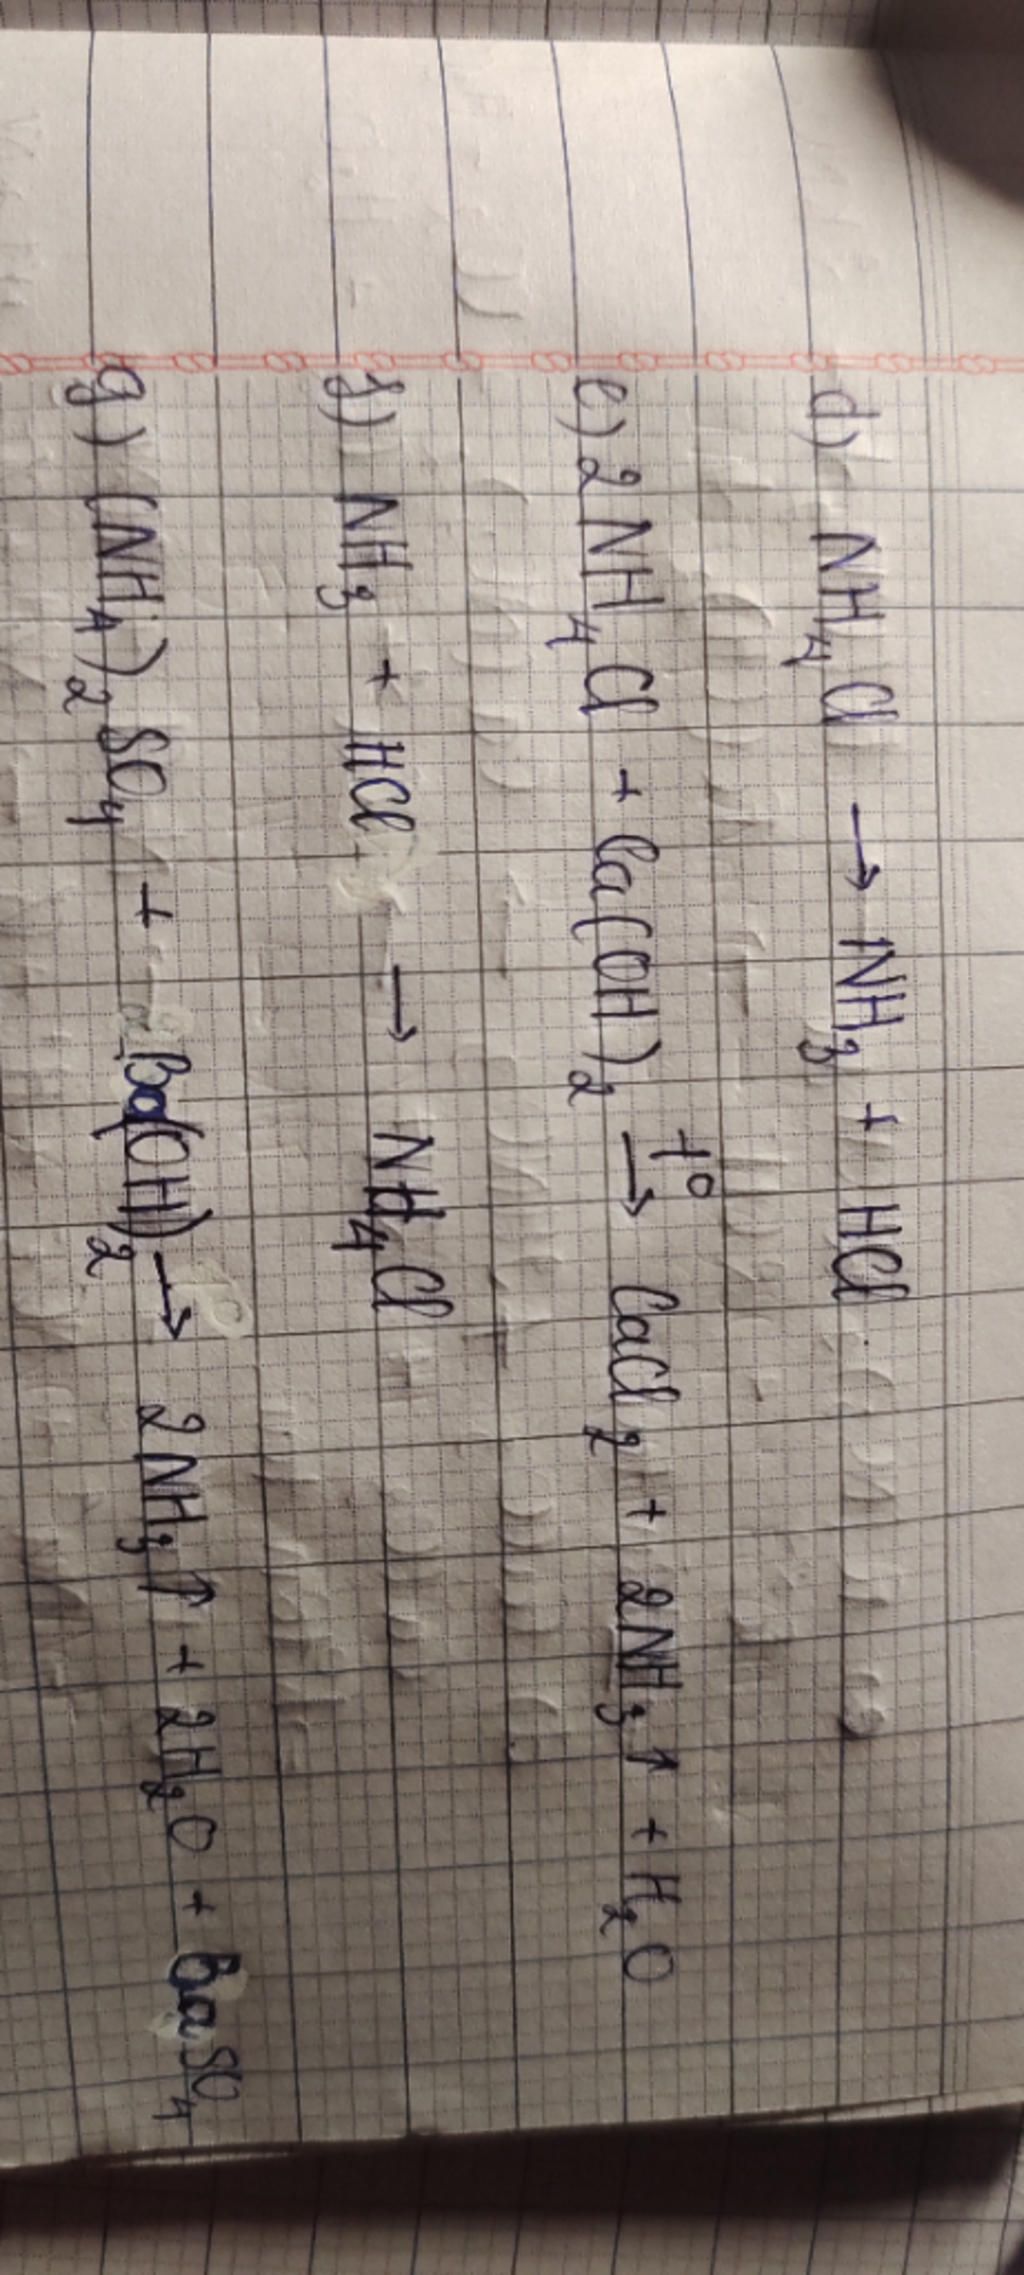 d) NH₄Cl → NH₃ + HCl
e) 2NH₄Cl + Ca(OH)₂ →t° CaCl₂ + 2NH₃↑ + H₂O
f) NH₃ + HCl → NH₄Cl
g) (NH₄)₂SO₄ + Ba(OH)₂ → 2NH₃↑ + 2H₂O + BaSO₄